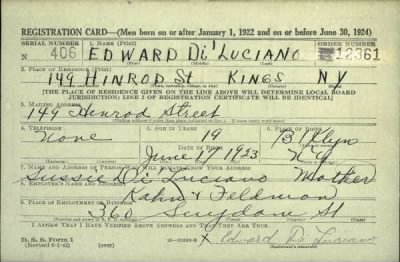 REGISTRATION CARD—(Men born on or after January 1, 1922 and on or before June 30, 1924)
SERIAL NUMBER 1. NAME (Print) ORDER NUMBER
N 406 EDWARD Di'LUCIANO 12361
(First) (Middle) (Last)
2. PLACE OF RESIDENCE (Print)
149 HINROD St KINGS NY
[THE PLACE OF RESIDENCE GIVEN ON THE LINE ABOVE WILL DETERMINE LOCAL BOARD
JURISDICTION; LINE 2 OF REGISTRATION CERTIFICATE WILL BE IDENTICAL]
3. MAILING ADDRESS
149 Hinrod Street
4. TELEPHONE 5. AGE IN YEARS 6. PLACE OF BIRTH
None 19 B'klyn
DATE OF BIRTH
June 1923 N.Y.
7. NAME AND ADDRESS OF PERSON WHO WILL ALWAYS KNOW YOUR ADDRESS
Sussie Di Luciano Mother
8. EMPLOYER'S NAME AND ADDRESS
Kahn & Feldman
9. PLACE OF EMPLOYMENT OR BUSINESS
360 Suydam St
I AFFIRM THAT I HAVE VERIFIED ABOVE ANSWERS AND THAT THEY ARE TRUE.
D. S. S. Form 1
(Revised 6-1-42) (over) X Edward Di Luciano